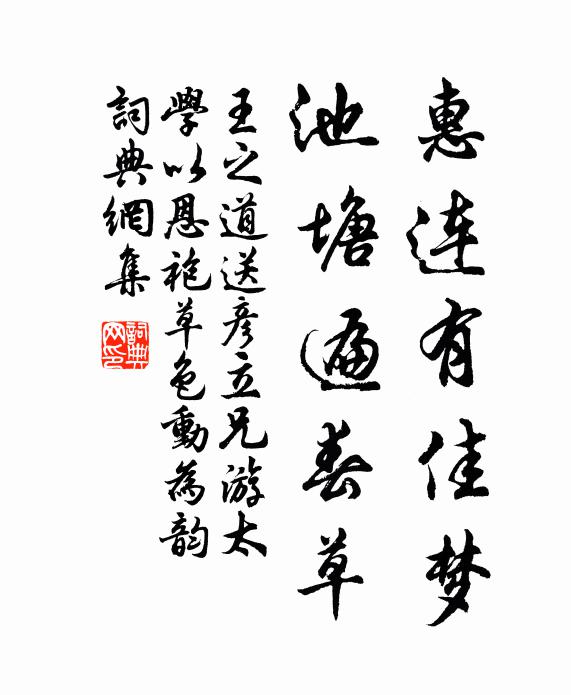 惠连有佳梦
池塘遍春草
王之道送彦立兄游太
學以恩袍草色動為韵
詞典網集
詞典网印